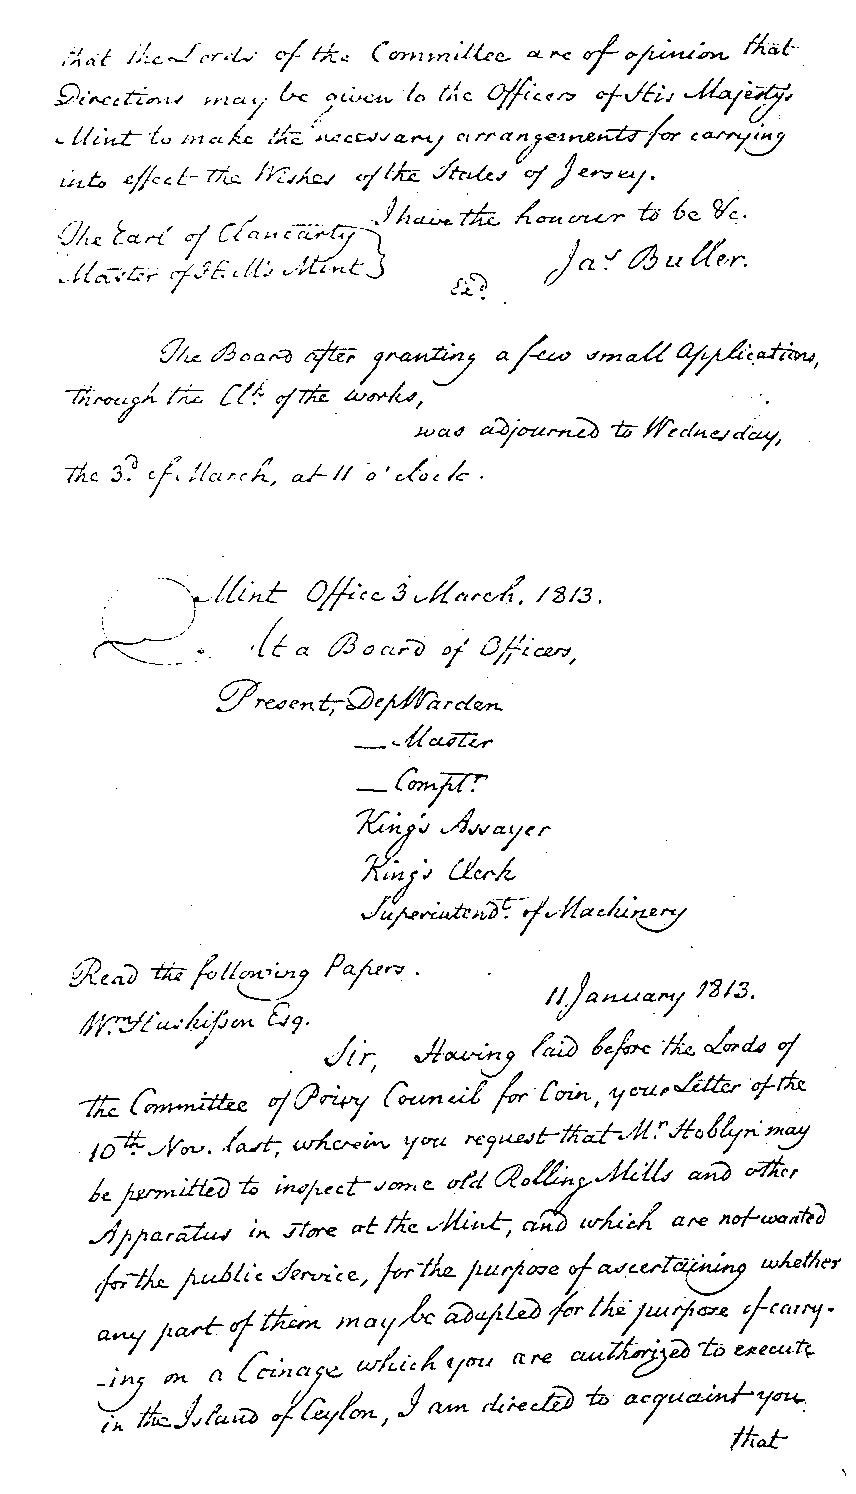 that the Lords of the Committee are of opinion that
Directions may be given to the Officers of His Majesty's
Mint to make the necessary arrangements for carrying
into effect the Wishes of the States of Jersey.
I have the honour to be &c.
The Earl of Clancarty
Master of H.M's Mint}
Jas Buller.
Exd.
The Board after granting a few small Applications,
through the Clk. of the works,
was adjourned to Wednesday,
the 3d. of March, at 11 o'clock.
Mint Office 3 March, 1813.
At a Board of Officers,
Present, Dep Warden
— Master
— Comptr
King's Assayer
King's Clerk
Superintendt. of Machinery
Read the following Papers.
11 January 1813.
Wm Huskisson Esq.
Sir, Having laid before the Lords of
the Committee of Privy Council for Coin, your Letter of the
10th Nov. last, wherein you request that Mr Hoblyn may
be permitted to inspect some old Rolling Mills and other
Apparatus in store at the Mint, and which are not wanted
for the public Service, for the purpose of ascertaining whether
any part of them may be adapted for the purpose of carry-
-ing on a Coinage which you are authorized to execute
in the Island of Ceylon, I am directed to acquaint you
that